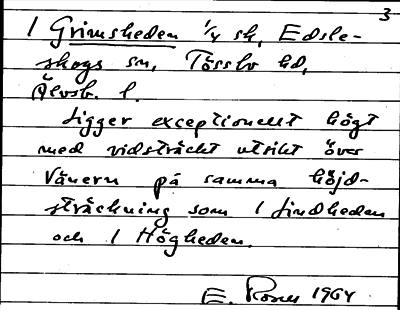 3
1 Grimsheden 1/4 sk, Edsle-
skogs sn, Tössbo hd,
Älvsb. l.
Ligger exceptionellt högt
med vidsträckt utsikt över
Vänern på samma höjd-
sträckning som 1 Lindheden
och 1 Högheden.
E. 1964